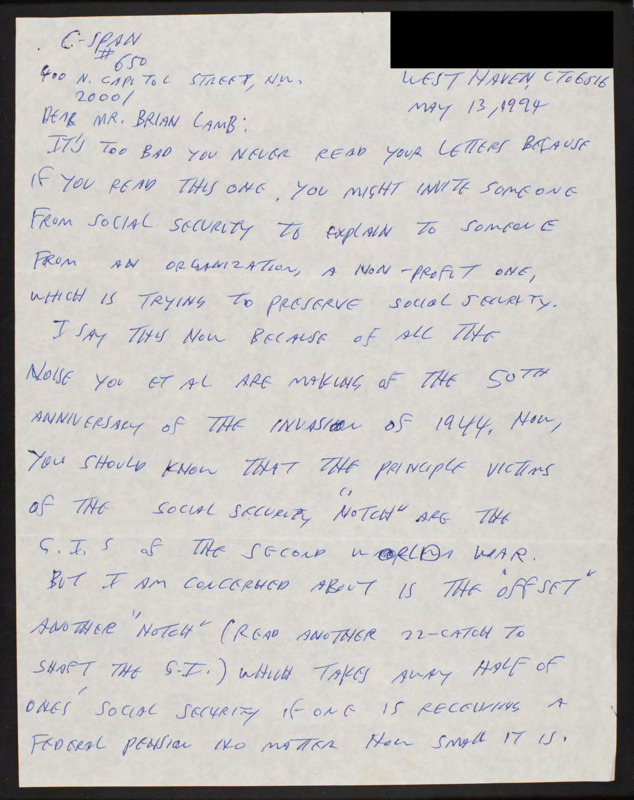 C-SPAN
#650
400 N. CAPITOL STREET, NW.
20001
WEST HAVEN, CT 06516
MAY 13, 1994
DEAR MR. BRIAN LAMB:
IT'S TOO BAD YOU NEVER READ YOUR LETTERS BECAUSE
IF YOU READ THIS ONE, YOU MIGHT INVITE SOMEONE
FROM SOCIAL SECURITY TO EXPLAIN TO SOMEONE
FROM AN ORGANIZATION, A NON-PROFIT ONE,
WHICH IS TRYING TO PRESERVE SOCIAL SECURITY.
I SAY THIS NOW BECAUSE OF ALL THE
NOISE YOU ET AL ARE MAKING OF THE 50TH
ANNIVERSARY OF THE INVASION OF 1944. NOW,
YOU SHOULD KNOW THAT THE PRINCIPLE VICTIMS
OF THE SOCIAL SECURITY "NOTCH" ARE THE
G.I.S OF THE SECOND WORLD WAR.
BUT I AM CONCERNED ABOUT IS THE "OFFSET"
ANOTHER "NOTCH" (READ ANOTHER 22-CATCH TO
SHAFT THE G.I.) WHICH TAKES AWAY HALF OF
ONES' SOCIAL SECURITY IF ONE IS RECEIVING A
FEDERAL PENSION NO MATTER HOW SMALL IT IS.